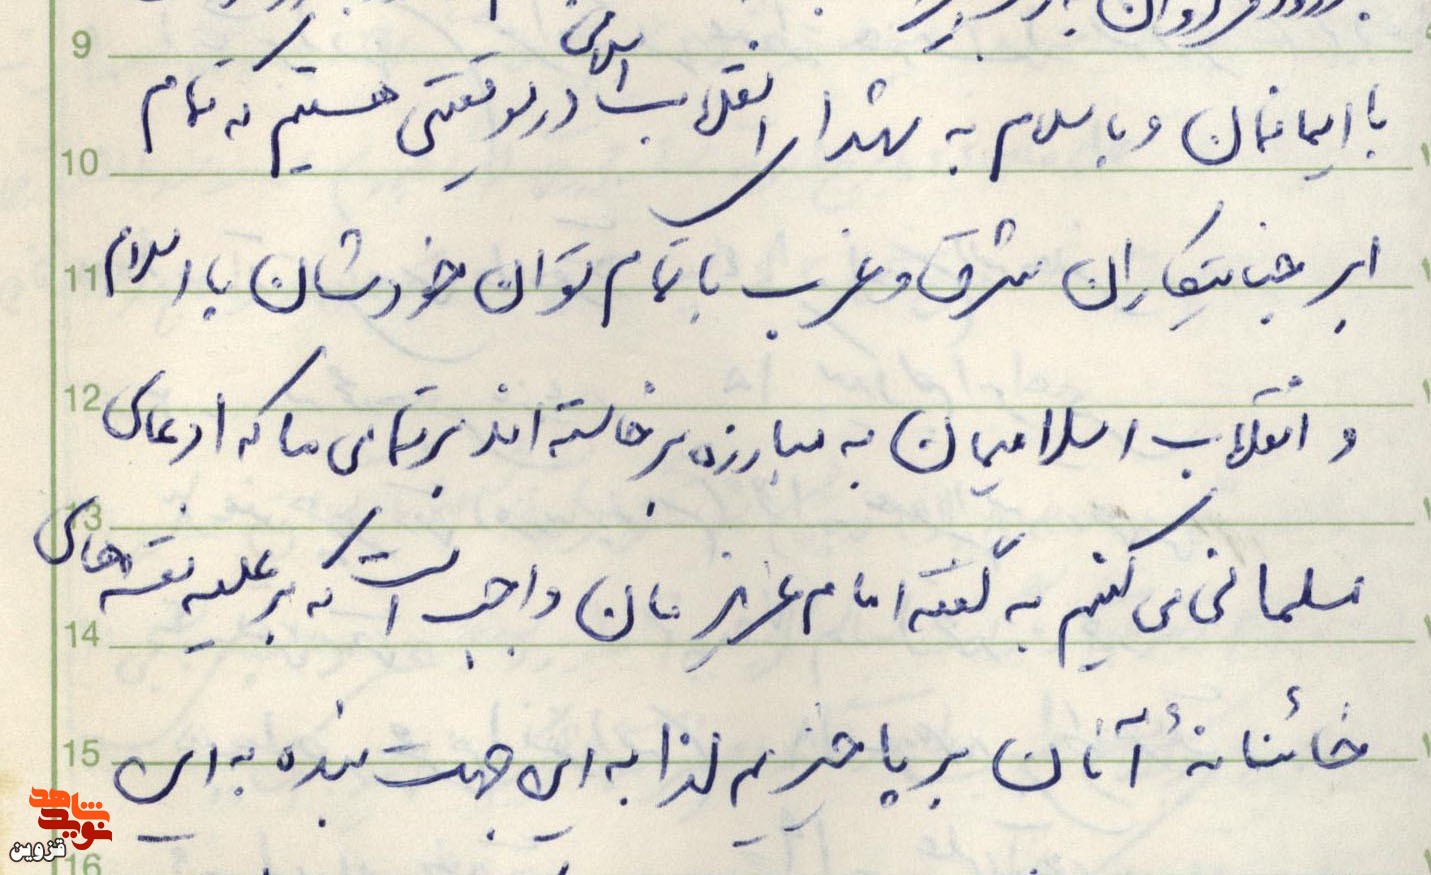 با ایمانمان و با سلام به شهدای انقلاب اسلامی در موقعیتی هستیم که تمام
ابر جنایتکاران شرق و غرب با تمام توان خودشان با اسلام
و انقلاب اسلامیمان به مبارزه برخاسته اند بر تمامی ما که ادعای
مسلمانی می کنیم به گفته امام عزیزمان واجب است که بر علیه نقشه های
خائنانهٔ آنان بر پا خیزیم لذا به این جهت بنده به این
9
10
11
12
13
14
15
16
شاهد
نوید
قزوین